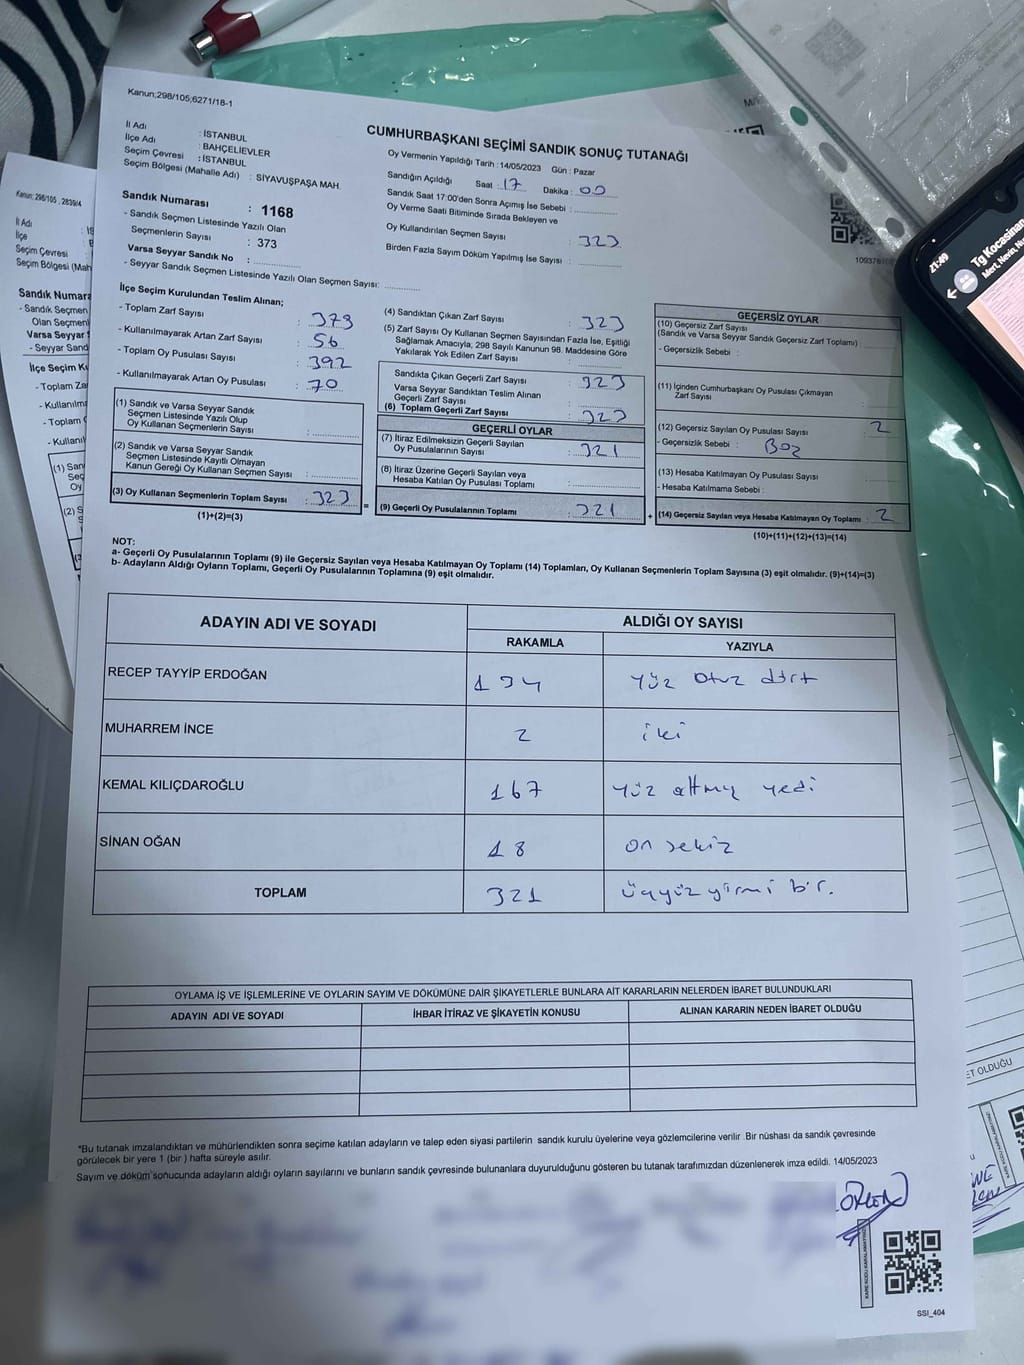 Kanun;298/105;6271/18-1
İl Adı : İSTANBUL
İlçe Adı : BAHÇELİEVLER
Seçim Çevresi : İSTANBUL
Seçim Bölgesi (Mahalle Adı) : SİYAVUŞPAŞA MAH.
CUMHURBAŞKANI SEÇİMİ SANDIK SONUÇ TUTANAĞI
Oy Vermenin Yapıldığı Tarih : 14/05/2023 Gün : Pazar
Sandığın Açıldığı Saat : 17 Dakika : 00
Sandık Saat 17:00'den Sonra Açımış İse Sebebi :
Oy Verme Saati Bitiminde Sırada Bekleyen ve
Oy Kullandırılan Seçmen Sayısı : 323
Birden Fazla Sayım Döküm Yapılmış İse Sayısı :
Sandık Numarası : 1168
- Sandık Seçmen Listesinde Yazılı Olan
Seçmenlerin Sayısı : 373
Varsa Seyyar Sandık No :
- Seyyar Sandık Seçmen Listesinde Yazılı Olan Seçmen Sayısı:
İlçe Seçim Kurulundan Teslim Alınan;
- Toplam Zarf Sayısı : 379
- Kullanılmayarak Artan Zarf Sayısı : 56
- Toplam Oy Pusulası Sayısı : 392
- Kullanılmayarak Artan Oy Pusulası : 70
(1) Sandık ve Varsa Seyyar Sandık
Seçmen Listesinde Yazılı Olup
Oy Kullanan Seçmenlerin Sayısı :
(2) Sandık ve Varsa Seyyar Sandık
Seçmen Listesinde Kayıtlı Olmayan
Kanun Gereği Oy Kullanan Seçmen Sayısı :
(3) Oy Kullanan Seçmenlerin Toplam Sayısı : 323
(1)+(2)=(3)
(4) Sandıktan Çıkan Zarf Sayısı : 323
(5) Zarf Sayısı Oy Kullanan Seçmen Sayısından Fazla İse, Eşitliği
Sağlamak Amacıyla, 298 Sayılı Kanunun 98. Maddesine Göre
Yakılarak Yok Edilen Zarf Sayısı :
Sandıkta Çıkan Geçerli Zarf Sayısı : 323
Varsa Seyyar Sandıktan Teslim Alınan
Geçerli Zarf Sayısı :
(6) Toplam Geçerli Zarf Sayısı : 323
GEÇERLİ OYLAR
(7) İtiraz Edilmeksizin Geçerli Sayılan
Oy Pusulalarının Sayısı : 321
(8) İtiraz Üzerine Geçerli Sayılan veya
Hesaba Katılan Oy Pusulası Toplamı :
(9) Geçerli Oy Pusulalarının Toplamı : 321
GEÇERSİZ OYLAR
(10) Geçersiz Zarf Sayısı
(Sandık ve Varsa Seyyar Sandık Geçersiz Zarf Toplamı)
- Geçersizlik Sebebi :
(11) İçinden Cumhurbaşkanı Oy Pusulası Çıkmayan
Zarf Sayısı
(12) Geçersiz Sayılan Oy Pusulası Sayısı : 2
- Geçersizlik Sebebi : Boz
(13) Hesaba Katılmayan Oy Pusulası Sayısı
- Hesaba Katılmama Sebebi :
(14) Geçersiz Sayılan veya Hesaba Katılmayan Oy Toplamı : 2
(10)+(11)+(12)+(13)=(14)
NOT:
a- Geçerli Oy Pusulalarının Toplamı (9) ile Geçersiz Sayılan veya Hesaba Katılmayan Oy Toplamı (14) Toplamları, Oy Kullanan Seçmenlerin Toplam Sayısına (3) eşit olmalıdır. (9)+(14)=(3)
b- Adayların Aldığı Oyların Toplamı, Geçerli Oy Pusulalarının Toplamına (9) eşit olmalıdır.
ADAYIN ADI VE SOYADI
ALDIĞI OY SAYISI
RAKAMLA YAZIYLA
RECEP TAYYİP ERDOĞAN 134 Yüz Otuz dört
MUHARREM İNCE 2 iki
KEMAL KILIÇDAROĞLU 167 Yüz altmış yedi
SİNAN OĞAN 18 on sekiz
TOPLAM 321 üçyüz yirmi bir.
OYLAMA İŞ VE İŞLEMLERİNE VE OYLARIN SAYIM VE DÖKÜMÜNE DAİR ŞİKAYETLERLE BUNLARA AİT KARARLARIN NELERDEN İBARET BULUNDUKLARI
ADAYIN ADI VE SOYADI İHBAR İTİRAZ VE ŞİKAYETİN KONUSU ALINAN KARARIN NEDEN İBARET OLDUĞU
*Bu tutanak imzalandıktan ve mühürlendikten sonra seçime katılan adayların ve talep eden siyasi partilerin sandık kurulu üyelerine veya gözlemcilerine verilir .Bir nüshası da sandık çevresinde
görülecek bir yere 1 (bir ) hafta süreyle asılır.
Sayım ve döküm sonucunda adayların aldığı oyların sayılarını ve bunların sandık çevresinde bulunanlara duyurulduğunu gösteren bu tutanak tarafımızdan düzenlenerek imza edildi. 14/05/2023
SSI_404
Kanun; 298/105 , 2839/4
İl Adı
İlçe
Seçim Çevresi
Seçim Bölgesi (Mah
Sandık Numara
- Sandık Seçmen
Olan Seçmen
Varsa Seyyar
- Seyyar Sand
İlçe Seçim K
- Toplam Za
- Kullanılma
- Toplam
- Kullanıl
21:49
Tg Kocasinan
Mert, Nevin, N
ET OLDUĞU